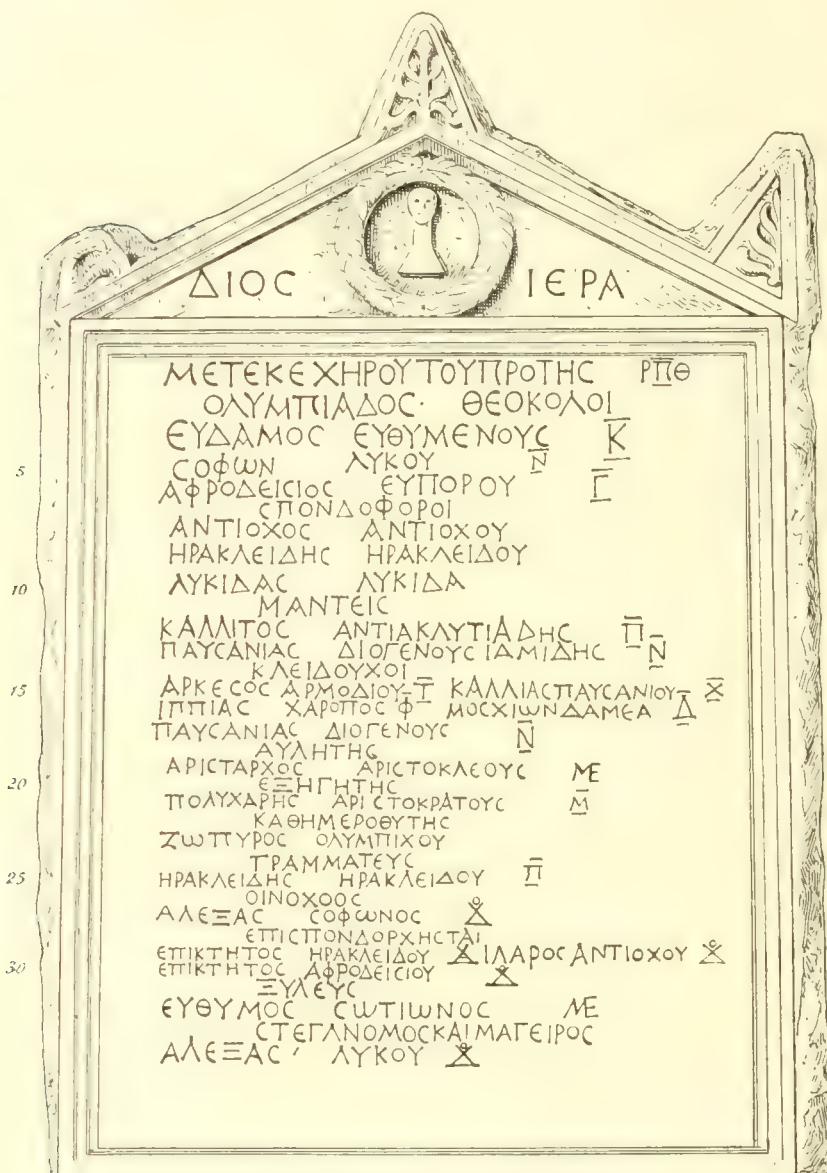 ΔΙΟC ΙΕΡΑ
ΜΕΤΕΚΕΧΗΡΟΥΤΟΥΠΡΟΤΗC ΡΠΘ
ΟΛΥΜΠΙΑΔΟC· ΘΕΟΚΟΛΟΙ
ΕΥΔΑΜΟC ΕΥΘΥΜΕΝΟΥC Κ
5 CΟΦΩΝ ΛΥΚΟΥ Ν
ΑΦΡΟΔΕΙCΙΟC ΕΥΠΟΡΟΥ Γ
CΠΟΝΔΟΦΟΡΟΙ
ΑΝΤΙΟΧΟC ΑΝΤΙΟΧΟΥ
ΗΡΑΚΛΕΙΔΗC ΗΡΑΚΛΕΙΔΟΥ
10 ΛΥΚΙΔΑC ΛΥΚΙΔΑ
ΜΑΝΤΕΙC
ΚΑΛΛΙΤΟC ΑΝΤΙΑΚΛΥΤΙΑΔΗC Π
ΠΑΥCΑΝΙΑC ΔΙΟΓΕΝΟΥCΙΑΜΙΔΗC Ν
ΚΛΕΙΔΟΥΧΟΙ
15 ΑΡΚΕCΟC ΑΡΜΟΔΙΟΥ Τ ΚΑΛΛΙΑCΠΑΥCΑΝΙΟΥ Χ
ΙΠΠΙΑC ΧΑΡΟΠΟC Φ ΜΟCΧΙΩΝΔΑΜΕΑ Δ
ΠΑΥCΑΝΙΑC ΔΙΟΓΕΝΟΥC Ν
ΑΥΛΗΤΗC
ΑΡΙCΤΑΡΧΟC ΑΡΙCΤΟΚΛΕΟΥC ΜΕ
20 ΕΞΗΓΗΤΗC
ΠΟΛΥΧΑΡΗC ΑΡΙCΤΟΚΡΑΤΟΥC Μ
ΚΑΘΗΜΕΡΟΘΥΤΗC
ΖΩΠΥΡΟC ΟΛΥΜΠΙΧΟΥ
ΓΡΑΜΜΑΤΕΥC
25 ΗΡΑΚΛΕΙΔΗC ΗΡΑΚΛΕΙΔΟΥ Π
ΟΙΝΟΧΟΟC
ΑΛΕΞΑC CΟΦΩΝΟC
ΕΠΙCΠΟΝΔΟΡΧΗCΤΑΙ
ΕΠΙΚΤΗΤΟC ΗΡΑΚΛΕΙΔΟΥ ΙΛΑΡΟCΑΝΤΙΟΧΟΥ
30 ΕΠΙΚΤΗΤΟC ΑΦΡΟΔΕΙCΙΟΥ
ΞΥΛΕΥC
ΕΥΘΥΜΟC CΩΤΙΩΝΟC ΜΕ
CΤΕΓΑΝΟΜΟCΚΑΙΜΑΓΕΙΡΟC
ΑΛΕΞΑC ΛΥΚΟΥ